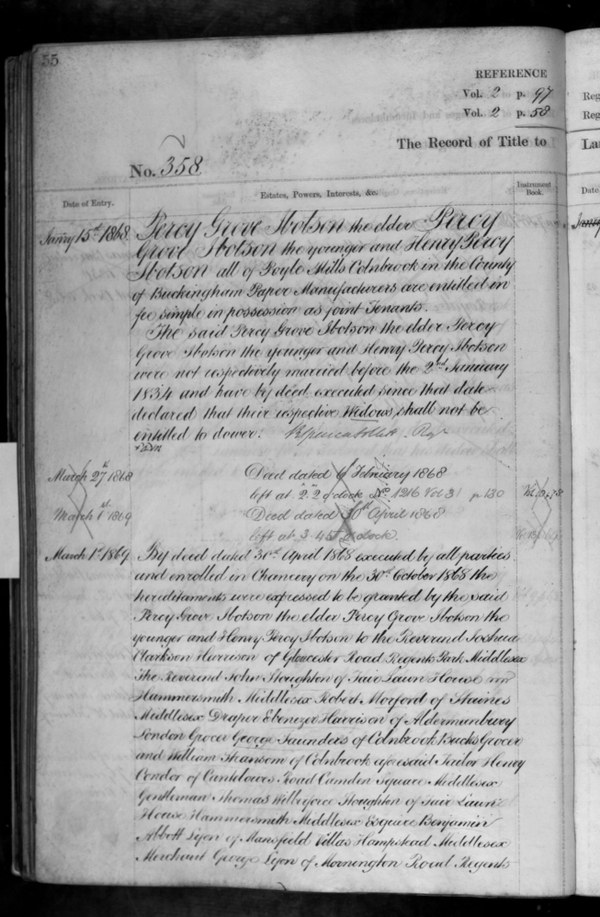 55
REFERENCE
Vol. 2 p. 97
Vol. 2 p. 58
The Record of Title to
La
No. 358
Date of Entry.
Estates, Powers, Interests, &c.
Instrument Book.
Reg
Reg
Date
Janry 15th 1868.
Percy Grove Ibotson the elder Percy
Grove Ibotson the younger and Henry Percy
Ibotson all of Poyle Mills Colnbrook in the County
of Buckingham Paper Manufacturers are entitled in
fee simple in possession as joint Tenants.
The said Percy Grove Ibotson the elder Percy
Grove Ibotson the younger and Henry Percy Ibotson
were not respectively married before the 2nd January
1834 and have by deed executed since that date
declared that their respective Widows shall not be
entitled to dower.
March 27th 1868
Deed dated 6 February 1868
left at 2.2 o'clock No. 1216 Vol 3 p 130
March 1st 1869
Deed dated 30th April 1868
left at 3.45 o'clock.
March 1st 1869
By deed dated 30th April 1868 executed by all parties
and enrolled in Chancery on the 30th October 1868 the
hereditaments were expressed to be granted by the said
Percy Grove Ibotson the elder Percy Grove Ibotson the
younger and Henry Percy Ibotson to the Reverend Joshua
Clarkson Harrison of Gloucester Road Regents Park Middlesex
The Reverend John Stoughton of Fair Lawn House
Hammersmith Middlesex Robert Morford of Staines
Middlesex Draper Ebenezer Harrison of Aldermanbury
London Grocer George Saunders of Colnbrook Bucks Grocer
and William Transom of Colnbrook aforesaid Tailor Henry
Conder of Cantelowes Road Camden Square Middlesex
Gentleman Thomas Wilberforce Stoughton of Fair Lawn
House Hammersmith Middlesex Esquire Benjamin
Abbott Lyon of Mansfield Villas Hampstead Middlesex
Merchant George Lyon of Mornington Road Regents